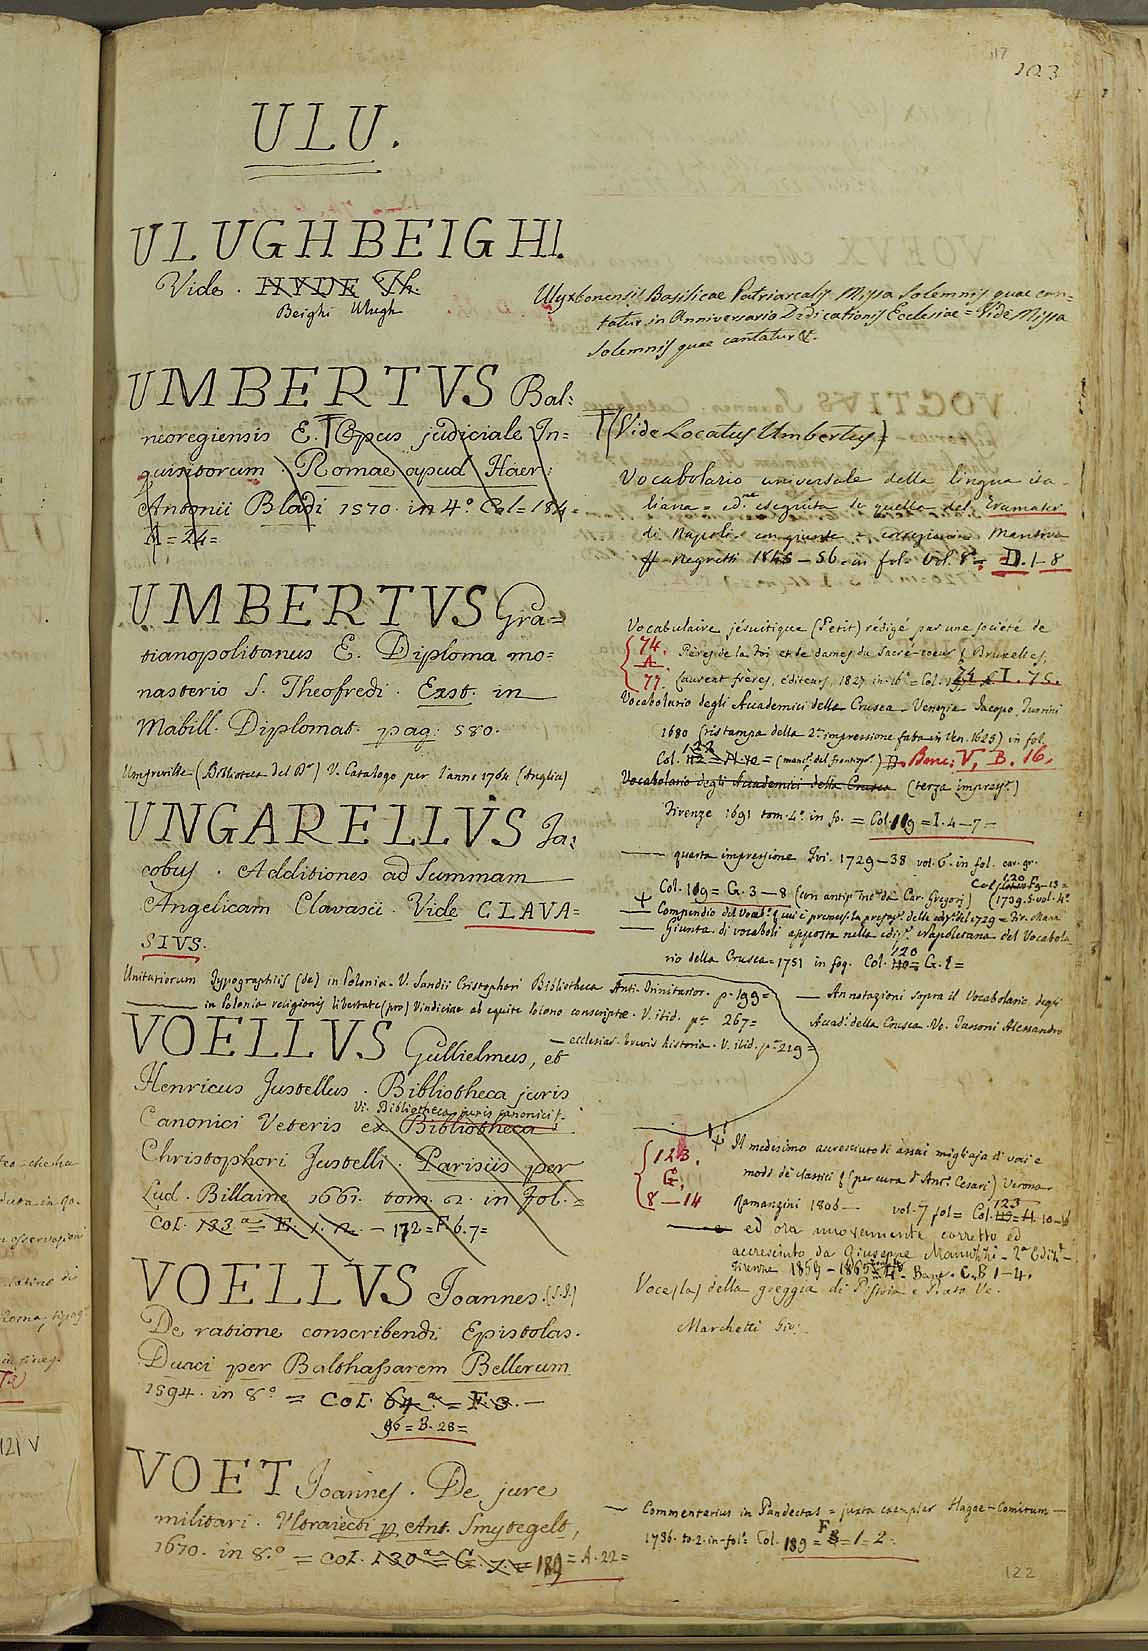 117
123
ULU.
ULUGHBEIGHI.
Vide. HYDE Th.
Beighi Ulugh
UMBERTVS Bal:
neoregiensis E. Opus judiciale In=
quisitorum. Romae apud Haer:
Antonii Bladi 1570. in 4.º Col=184=
A=24=
UMBERTVS Gra=
tianopolitanus E. Diploma mo=
nasterio S. Theofredi. Exst. in
Mabill. Diplomat. pag: 580.
(Biblioteca del Dr) V. Catalogo per l'anno 1764 (Anglia)
UNGARELLVS Ja:
cobus. Additiones ad Summam
Angelicam Clavasii. Vide CLAVA=
SIVS.
Unitariorum Typographiis (de) in Polonia. V. Sandii Cristophori Bibliotheca Anti-Trinitarior. p. 199=
in Polonia religionis libertate (pro) Vindiciae ab equite Polono conscriptae. V. ibid. pa 267=
— ecclesias. brevis historia. V. ibid. pa 219=
VOELLVS Gullielmus, et
Henricus Justellus. Bibliotheca juris
Vi. Bibliotheca juris canonici &.
Canonici Veteris ex Bibliotheca
Christophori Justelli. Parisiis per
Lud. Billaine 1661. tom. 2. in fol.=
Col. 123a= E. 1. 12. — 172=F 6. 7=
VOELLVS Joannes. (S.J.)
De ratione conscribendi Epistolas.
Duaci per Balthassarem Bellerum
1594. in 8.º = Col. 64a.= F. 3. —
96=B. 28=
VOET Joannes. De jure
militari. Vltraiecti p Ant. Smytegelt,
1670. in 8.º = Col. 130a= G. 7.= 189=A. 22=
Ulyxbonensis Basilicae Patriarcalis Missa Solemnis quae can=
tatur in Anniversario Dedicationis Ecclesiae = Vide Missa
Solemnis quae cantatur &.
(Vide Locatus Umbertus)
Vocabolario universale della lingua ita-
liana = edne eseguita su quella del Tramater
di Napoli con giunte e correzioni Mantova
Negretti 1845 — 56 in fol. Vol. 8= D. 1-8
Vocabulaire jésuitique (Petit) rédigé par une société de
74. Pères de la Foi et de dames du Sacré-coeur (Bruxelles,
A.
77. Laurent frères, éditeurs, 1827 in-16º = Col. I. 75.
Vocabolario degli Accademici della Crusca Venezia Jacopo
1680 (ristampa della 2a impressione fatta in Ven. 1623) in fol.
Col. 122 (manca del frontisp.) Banc. V, B. 16.
Vocabolario degli Accademici della Crusca (terza impress.)
Firenze 1691 tom. 4. in fo. = Col. 119 = I. 4 — 7 =
—— quarta impressione Fir. 1729—38 vol. 6. in fol. car. gr.
Col. 119 = G. 3 — 8
Compendio del Vocab.
Giunta di vocaboli apposta nella ediz. Napoletana del Vocabola
rio della Crusca = 1751 in fog. Col. 120 = G. 2=
— Annotazioni sopra il Vocabolario degli
Accadi della Crusca. Ve. Tassoni Alessandro
123. Il medesimo accresciuto di assai migliaja di voci e
G. modi de' classici (per cura d' Ant. Cesari) Verona
8 — 14 Ramanzini 1806 — vol. 7 fol = Col. 123
—— ed ora nuovamente corretto ed
accresciuto da Giuseppe Manuzzi. 2a Ediz.
Firenze 1859 — 1865 = 4º. Banc. C. B 1-4.
Voce (la) della greggia di Pistoia e Prato Ve.
Marchetti Gio:
— Commentarius in Pandectas = juxta exemplar Hagae-Comitum —
1736. to. 2. in-fol= Col. 189 = F = 1-2.
122
121 V